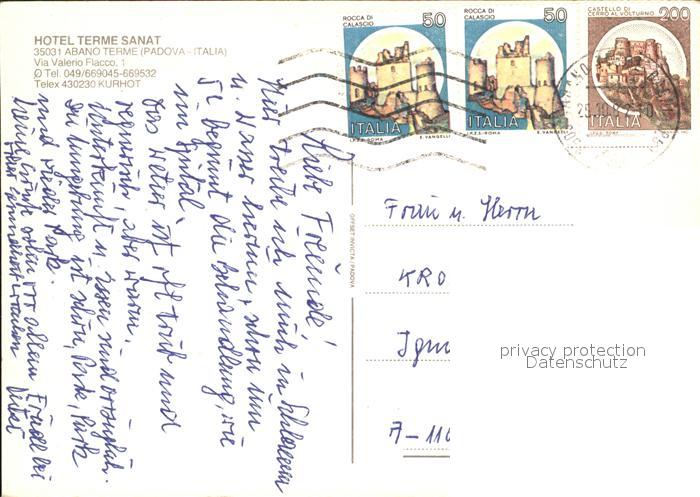 HOTEL TERME SANAT
35031 ABANO TERME (PADOVA - ITALIA)
Via Valerio Flacco, 1
Tel. 049/669045-669532
Telex 430230 KURHOT
ROCCA DI
CALASCIO
50
ITALIA
I.P.Z.S.-ROMA E. VANGELLI
ROCCA DI
CALASCIO
50
ITALIA
I.P.Z.S.-ROMA E. VANGELLI
CASTELLO DI
CERRO AL VOLTURNO
200
ITALIA
Liebe Freunde!
Hier treibe ich mich in Schlamm
u. Wasser herum, schon um
5h beginnt die Behandlung, wie
im Spital.
Das Wetter ist oft trüb und
regnerisch, aber warm.
Unterkunft u. Essen sind vorzüglich.
Die Umgebung ist schön, Park, Park
und wieder Park.
OFFSET-INVICTA / PADOVA
Frau u. Herrn
KRO
Igm
A-116
privacy protection
Datenschutz